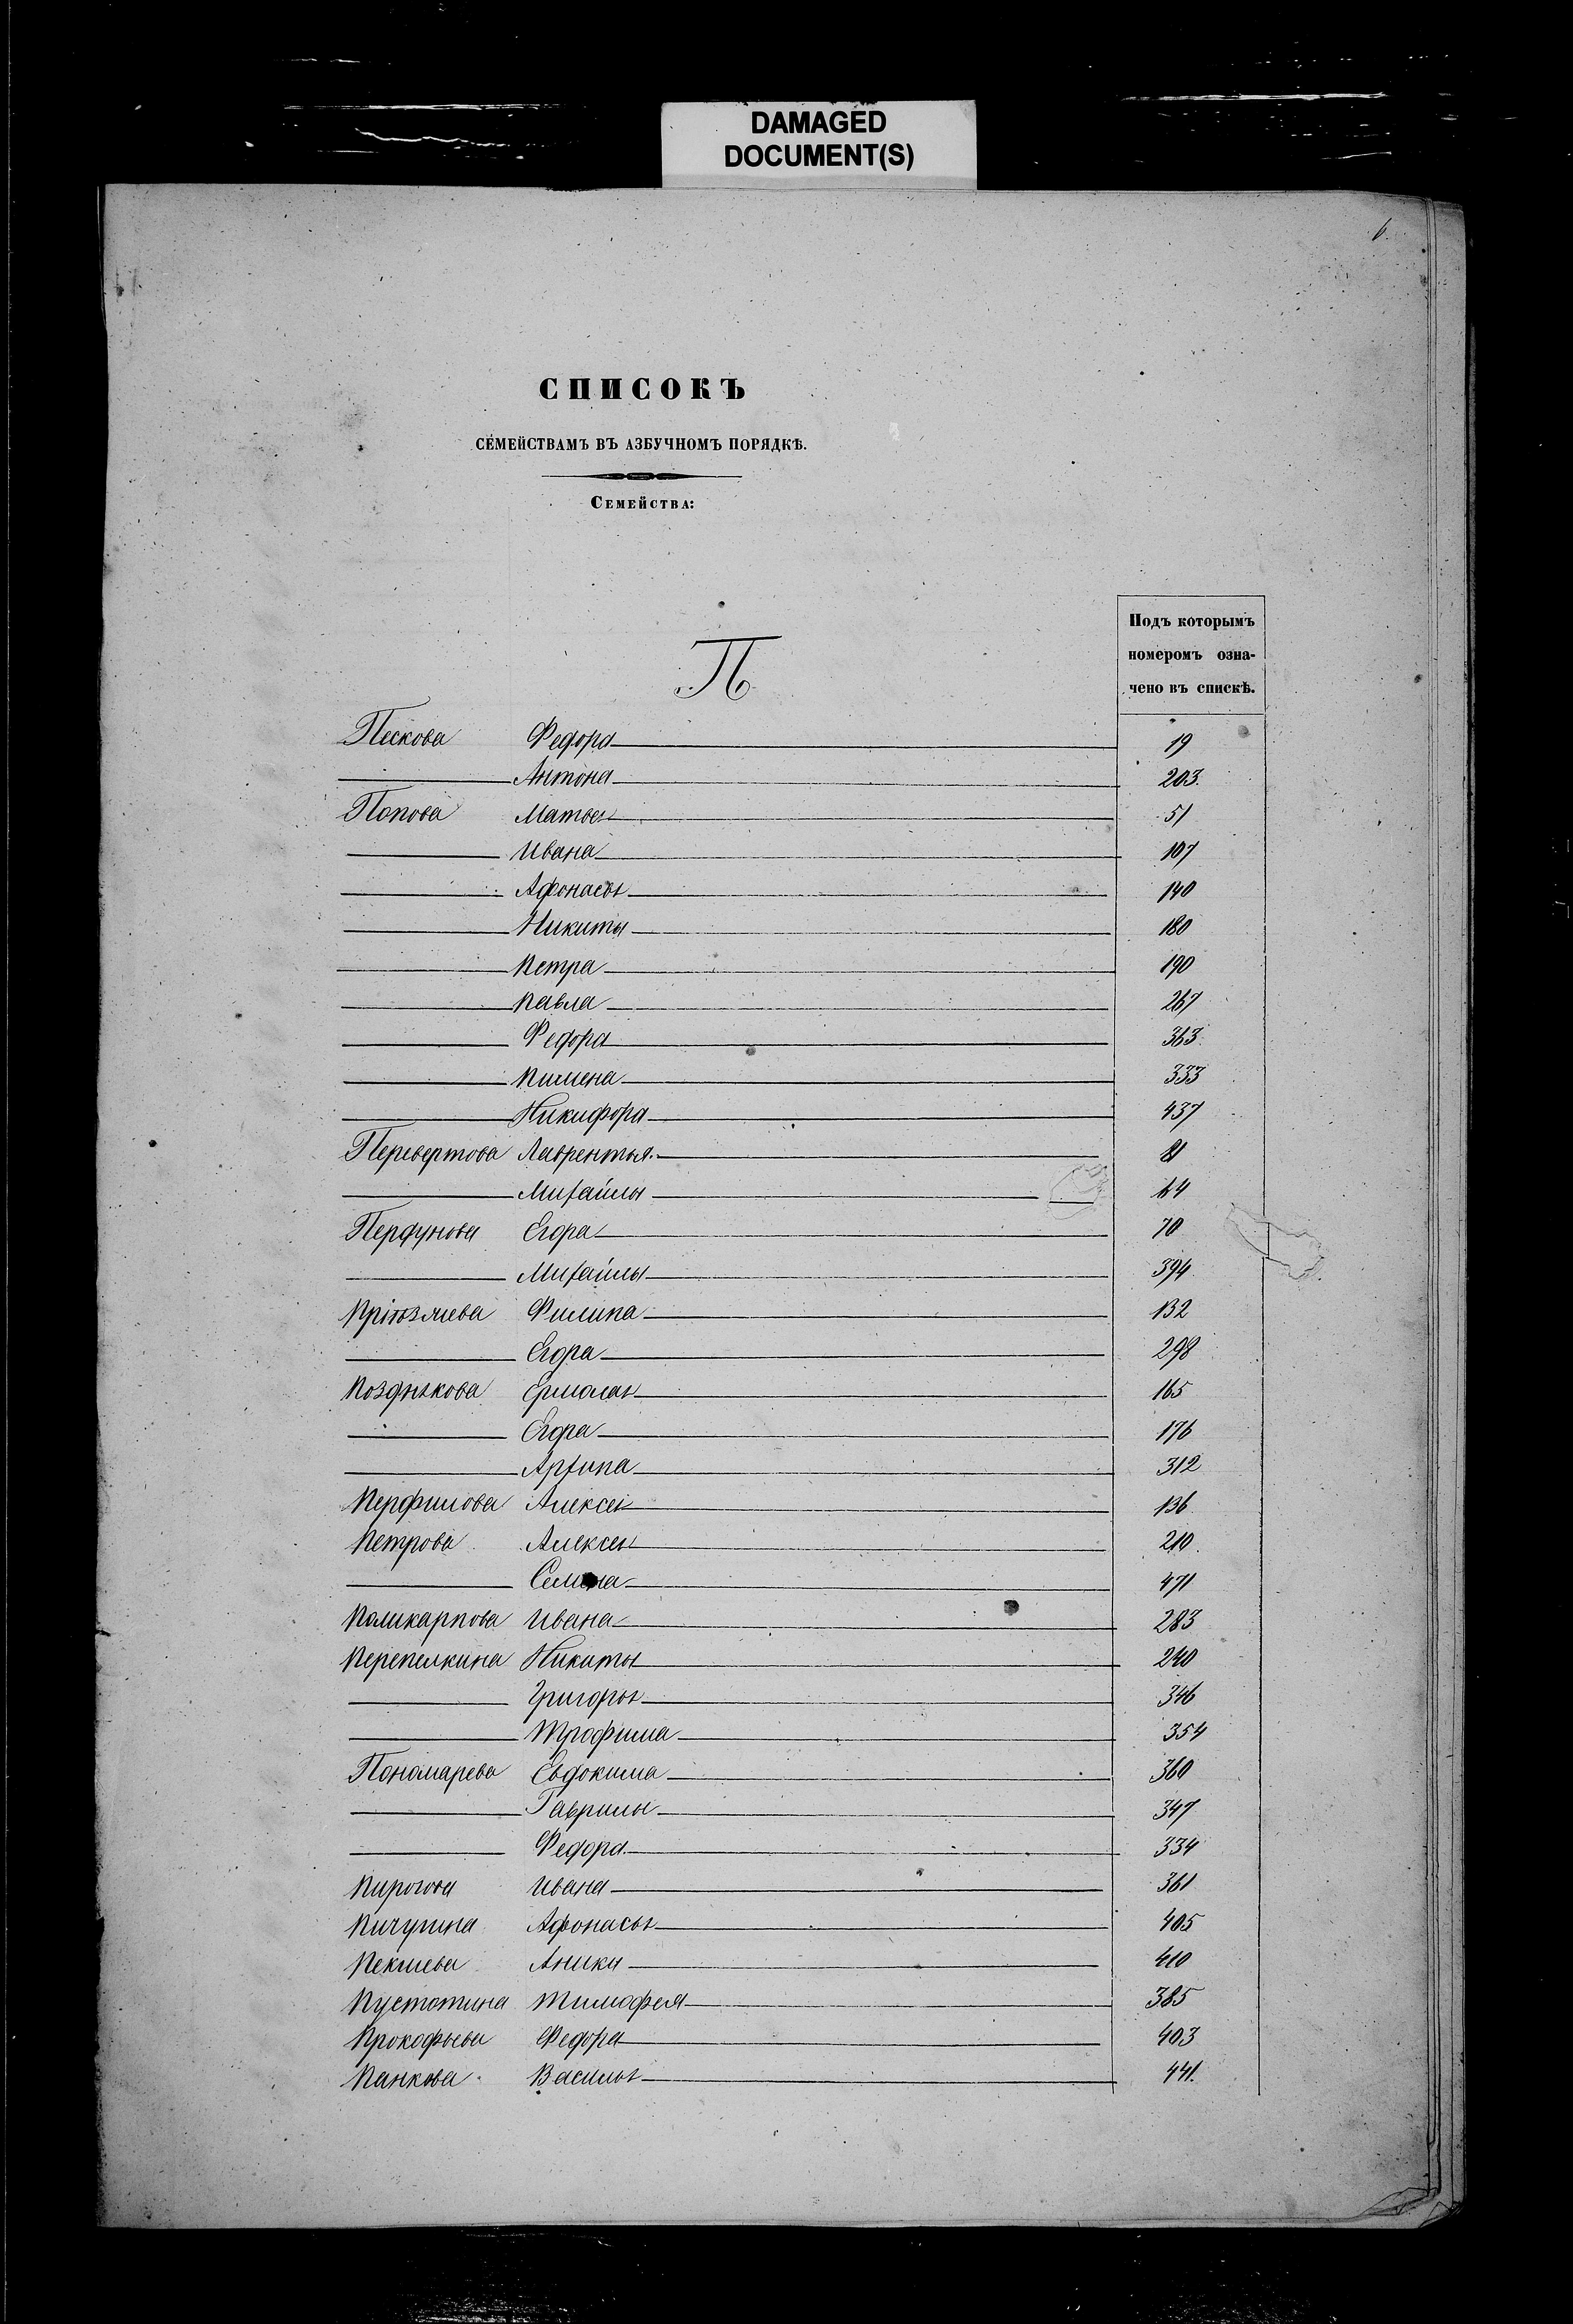 DAMAGED
DOCUMENT(S)
6.
СПИСОКЪ
СЕМЕЙСТВАМЪ ВЪ АЗБУЧНОМЪ ПОРЯДКѢ.
Семейства:
Подъ которымъ
номеромъ озна-
чено въ спискѣ.
П
Пескова Федора 19
Антона 203.
Попова Матвея 51
Ивана 107
Афонасья 140
Никиты 180
Петра 190
Павла 267
Федора 363
Пимена 333
Никифора 437
Перевертова Лаврентья.
Михайлы 64
Перфунова Егора 70
Михайлы 394
Филипа 132
Егора 298
Позднякова Ермолая 165
Егора 176
Архипа 312
Перфилова Алексея 136
Петрова Алексея 210.
Семена 471
Поликарпова Ивана 283
Перепелкина Никиты 240
Григорья 346
Трофима 354
Пономарева Евдокима 360
Гаврилы 347
Федора 334
Пирогова Ивана 361
Пичугина Афонасья 405
Пекшева Аники 410
Пустотина Тимофея 385
Прокофьева Федора 403
Панкова Василья 441.